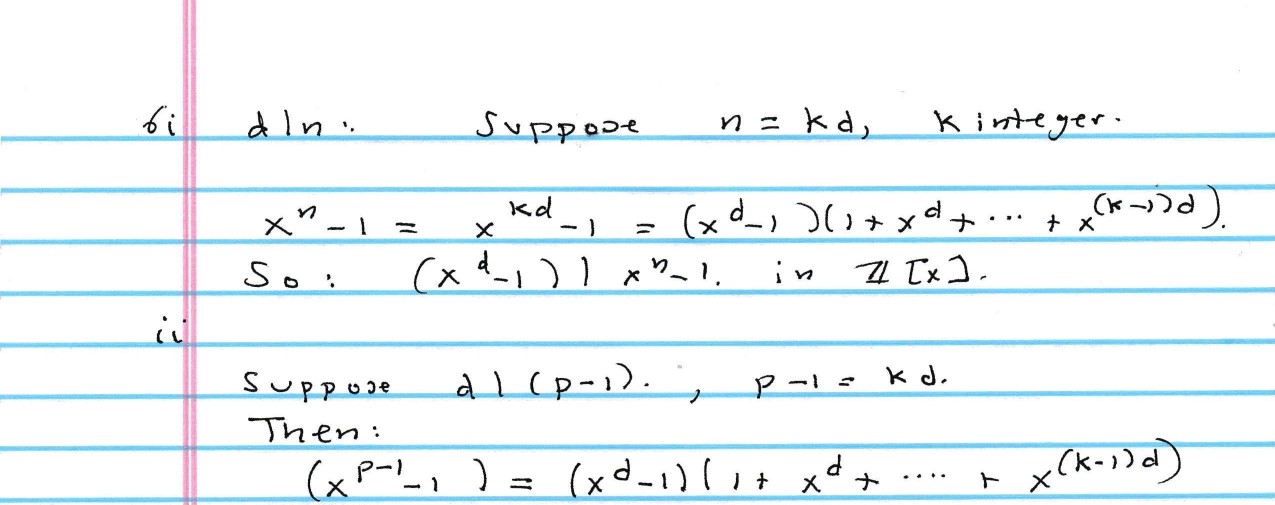 6i d|n: Suppose n = kd, k integer.
x^n - 1 = x^{kd} - 1 = (x^d - 1)(1 + x^d + ... + x^{(k-1)d}).
So: (x^d - 1) | x^n - 1. in ℤ[x].
ii
Suppose d | (p-1). , p-1 = kd.
Then:
(x^{p-1} - 1) = (x^d - 1)(1 + x^d + .... + x^{(k-1)d})